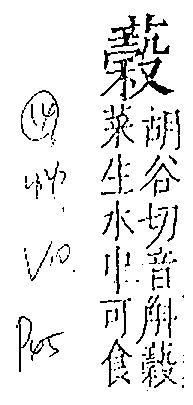 胡谷切音斛穀
菜生水中可食
艸
V10.
P45